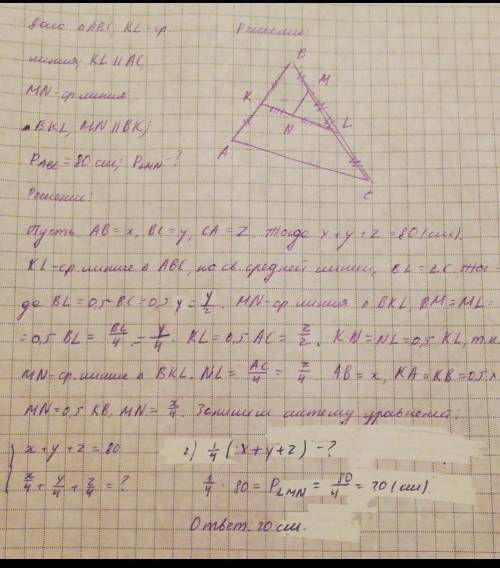 Дано ΔABC, KL-ср. Решение:
линия, KL || AC,
MN-ср.линия
BKL, MN || BK;
P ABC = 80 см; P LMN - ?
Решение:
B
M
K
N
L
A
C
Пусть AB = x, BC = y, CA = z. Тогда x+y+z = 80 (см).
KL-ср.линия Δ ABC, по св. средней линии, BL = LC. Тог
да BL = 0,5·BC = 0,5 y = y/2. MN-ср.линия Δ BKL, BM = ML =
= 0,5 BL = BC/4 = y/4. KL = 0,5 AC = z/2. KN = NL = 0,5 KL, т.к.
MN-ср.линия Δ BKL. NL = AC/4 = z/4. AB = x, KA = KB = 0,5 x.
MN = 0,5 KB, MN = x/4. Запишем систему уравнений:
x + y + z = 80 2) 1/4 (x+y+z) - ?
x/4 + y/4 + z/4 = ? 1/4 · 80 = P LMN = 80/4 = 20 (см).
Ответ. 20 см.